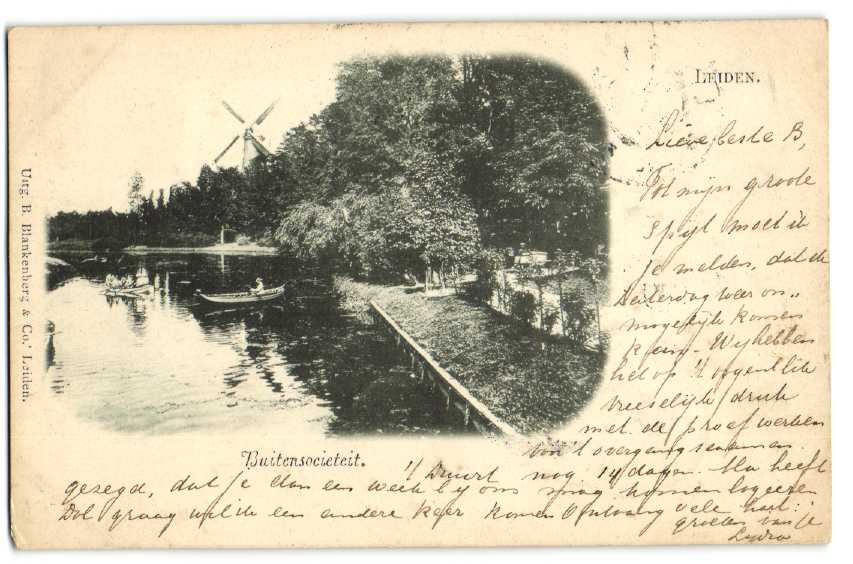 LEIDEN.
Lieve beste B,
Tot mijn groote
spijt moet ik
je melden, dat ik
Zaterdag weer on„
mogelijk komen
kan. Wij hebben
het op 't oogenblik
vreeselijk druk
met de proefwerken
voor 't overgangsexamen.
't Duurt nog 14 dagen. Ma heeft
gezegd, dat je dan een week bij ons mag komen logeeren
Dol graag wil ik een andere keer komen Ontvang vele hart:
groeten van je
Lydia
Buitensocieteit.
Uitg. B. Blankenberg & Co. Leiden.